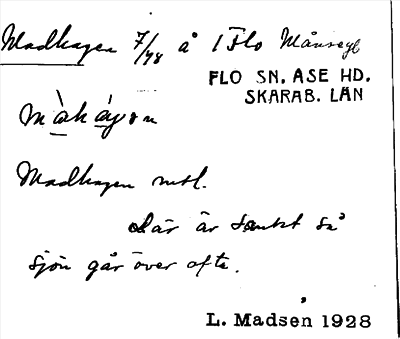 Madhagen 7/48 å 1 Flo Månseg
FLO SN. ASE HD.
SKARAB. LÄN
Madhagen mtl.
Där är sankt så
sjön går över ofte.
L. Madsen 1928